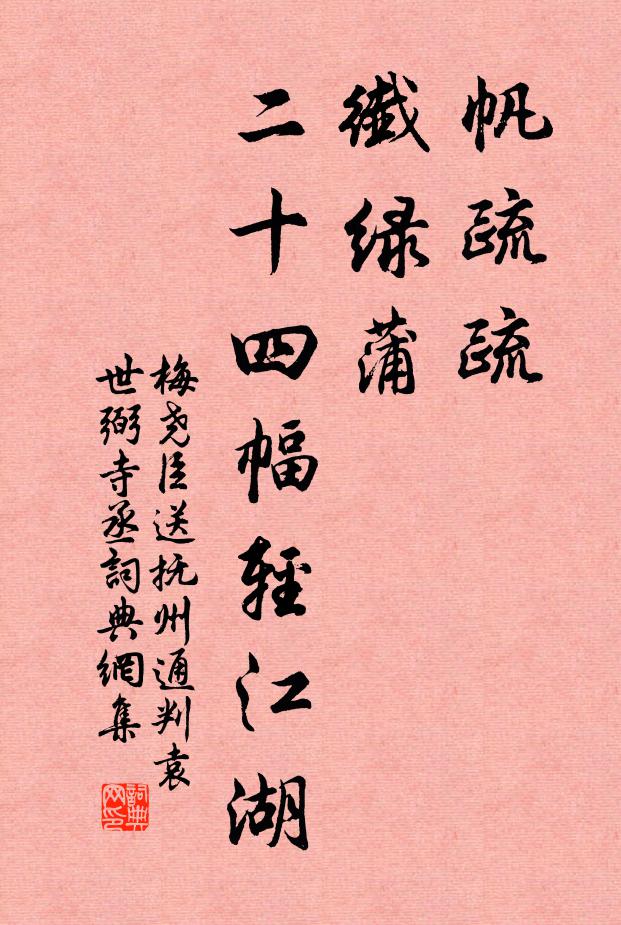 帆疏疏
織绿蒲
二十四幅輕江湖
梅尧臣送抚州通判袁
世弼寺丞詞典網集
詞典
网印